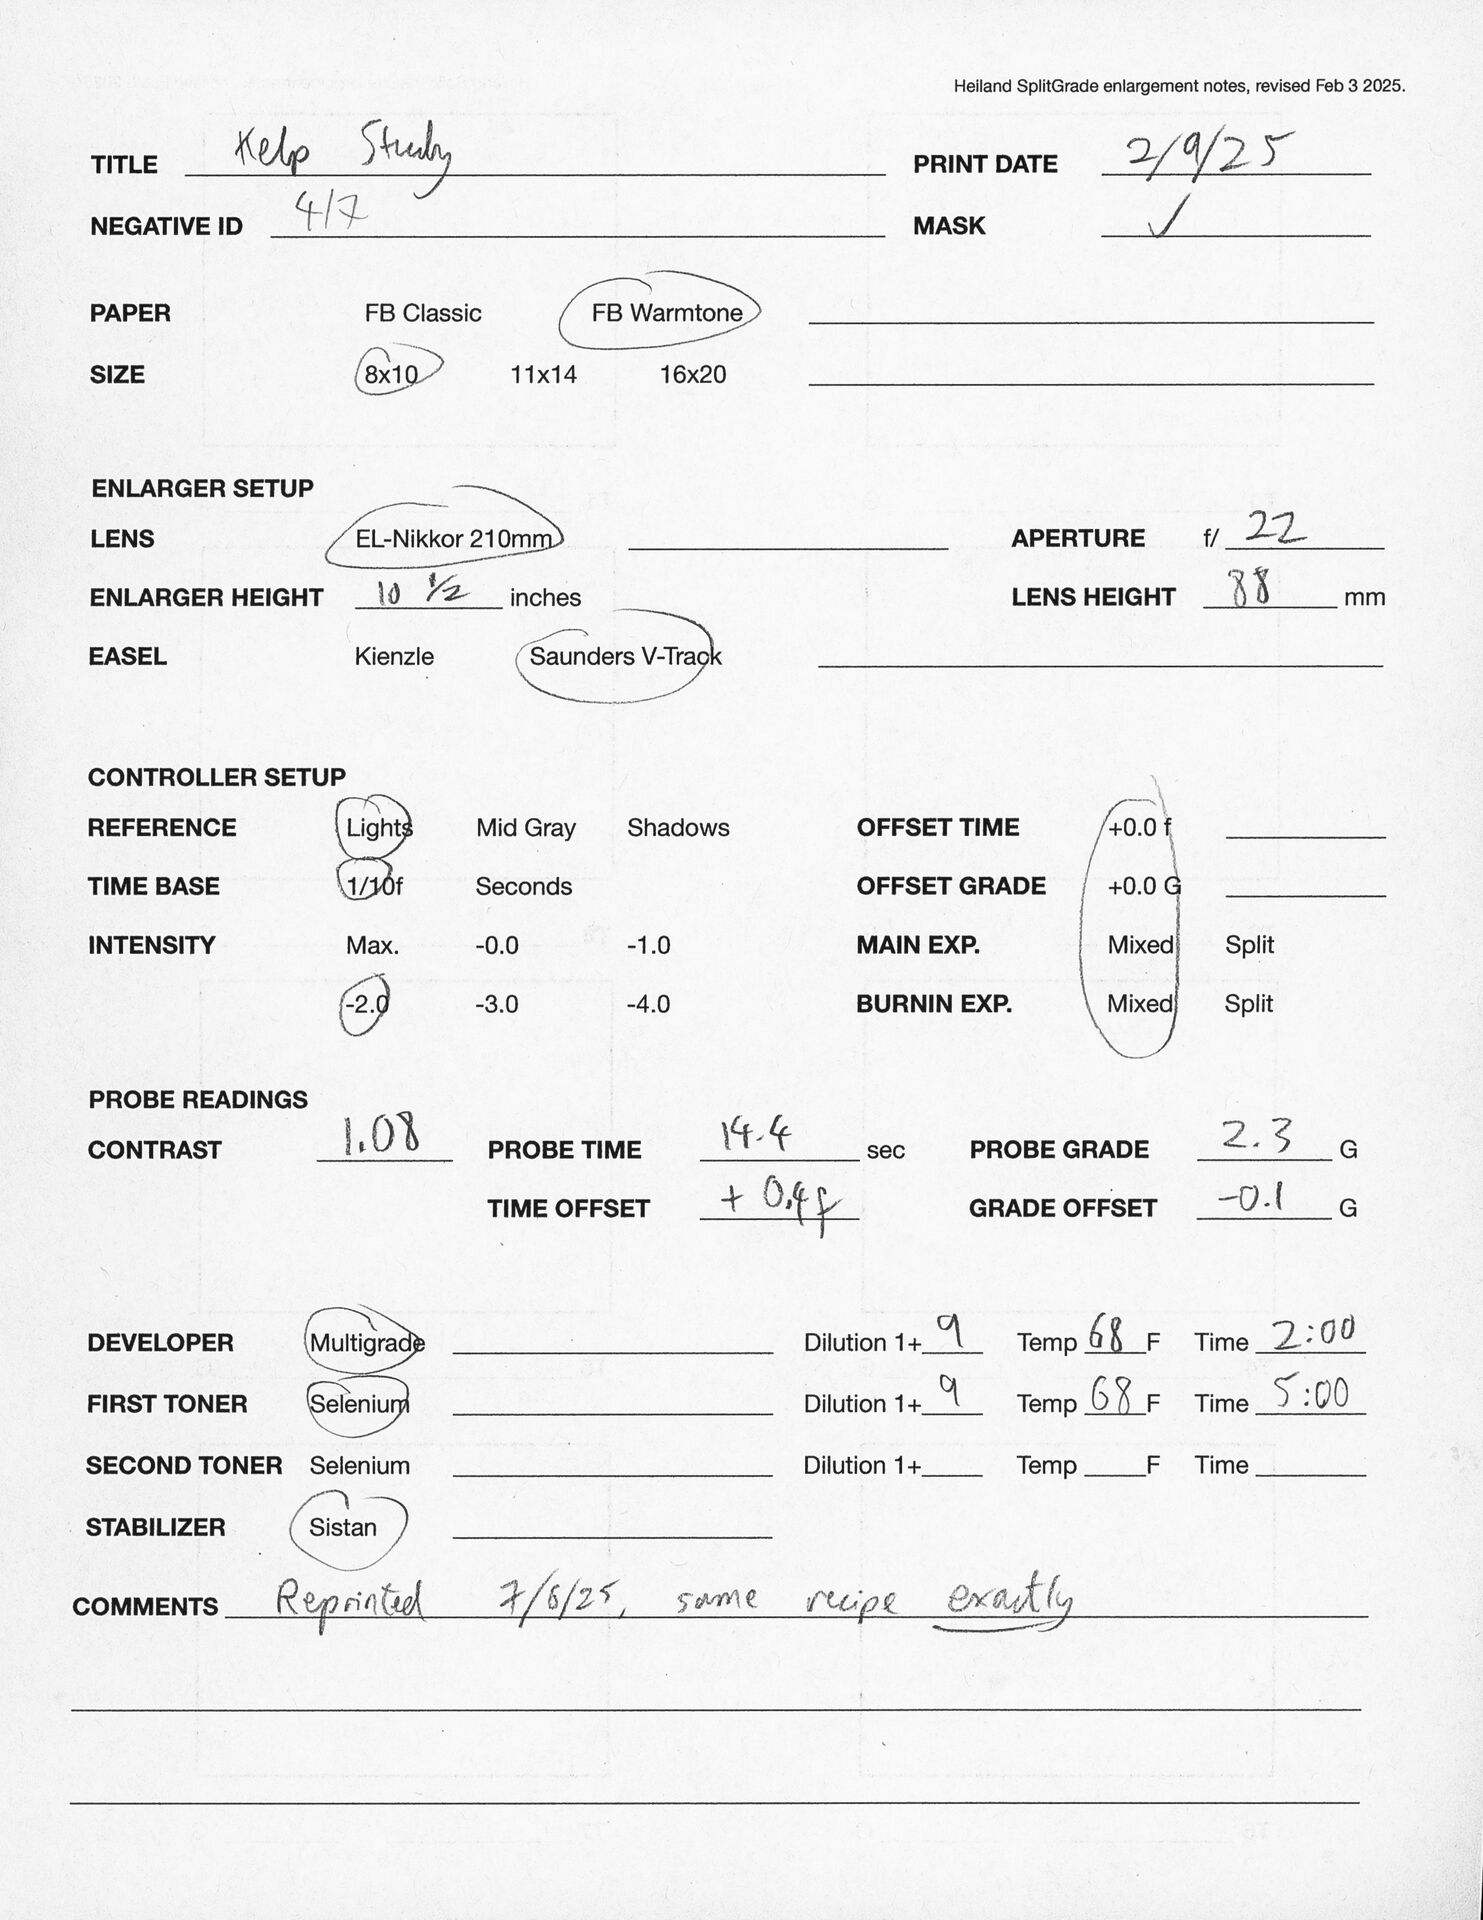 Heiland SplitGrade enlargement notes, revised Feb 3 2025.
TITLE Kelp Study PRINT DATE 2/9/25
NEGATIVE ID 4/7 MASK ✓
PAPER FB Classic FB Warmtone
SIZE 8x10 11x14 16x20
ENLARGER SETUP
LENS EL-Nikkor 210mm APERTURE f/ 22
ENLARGER HEIGHT 10 1/2 inches LENS HEIGHT 88 mm
EASEL Kienzle Saunders V-Track
CONTROLLER SETUP
REFERENCE Lights Mid Gray Shadows OFFSET TIME +0.0 f
TIME BASE 1/10f Seconds OFFSET GRADE +0.0 G
INTENSITY Max. -0.0 -1.0 MAIN EXP. Mixed Split
-2.0 -3.0 -4.0 BURNIN EXP. Mixed Split
PROBE READINGS
CONTRAST 1.08 PROBE TIME 14.4 sec PROBE GRADE 2.3 G
TIME OFFSET + 0.4f GRADE OFFSET -0.1 G
DEVELOPER Multigrade Dilution 1+ 9 Temp 68 F Time 2:00
FIRST TONER Selenium Dilution 1+ 9 Temp 68 F Time 5:00
SECOND TONER Selenium Dilution 1+ Temp F Time
STABILIZER Sistan
COMMENTS Reprinted 7/6/25, same recipe exactly